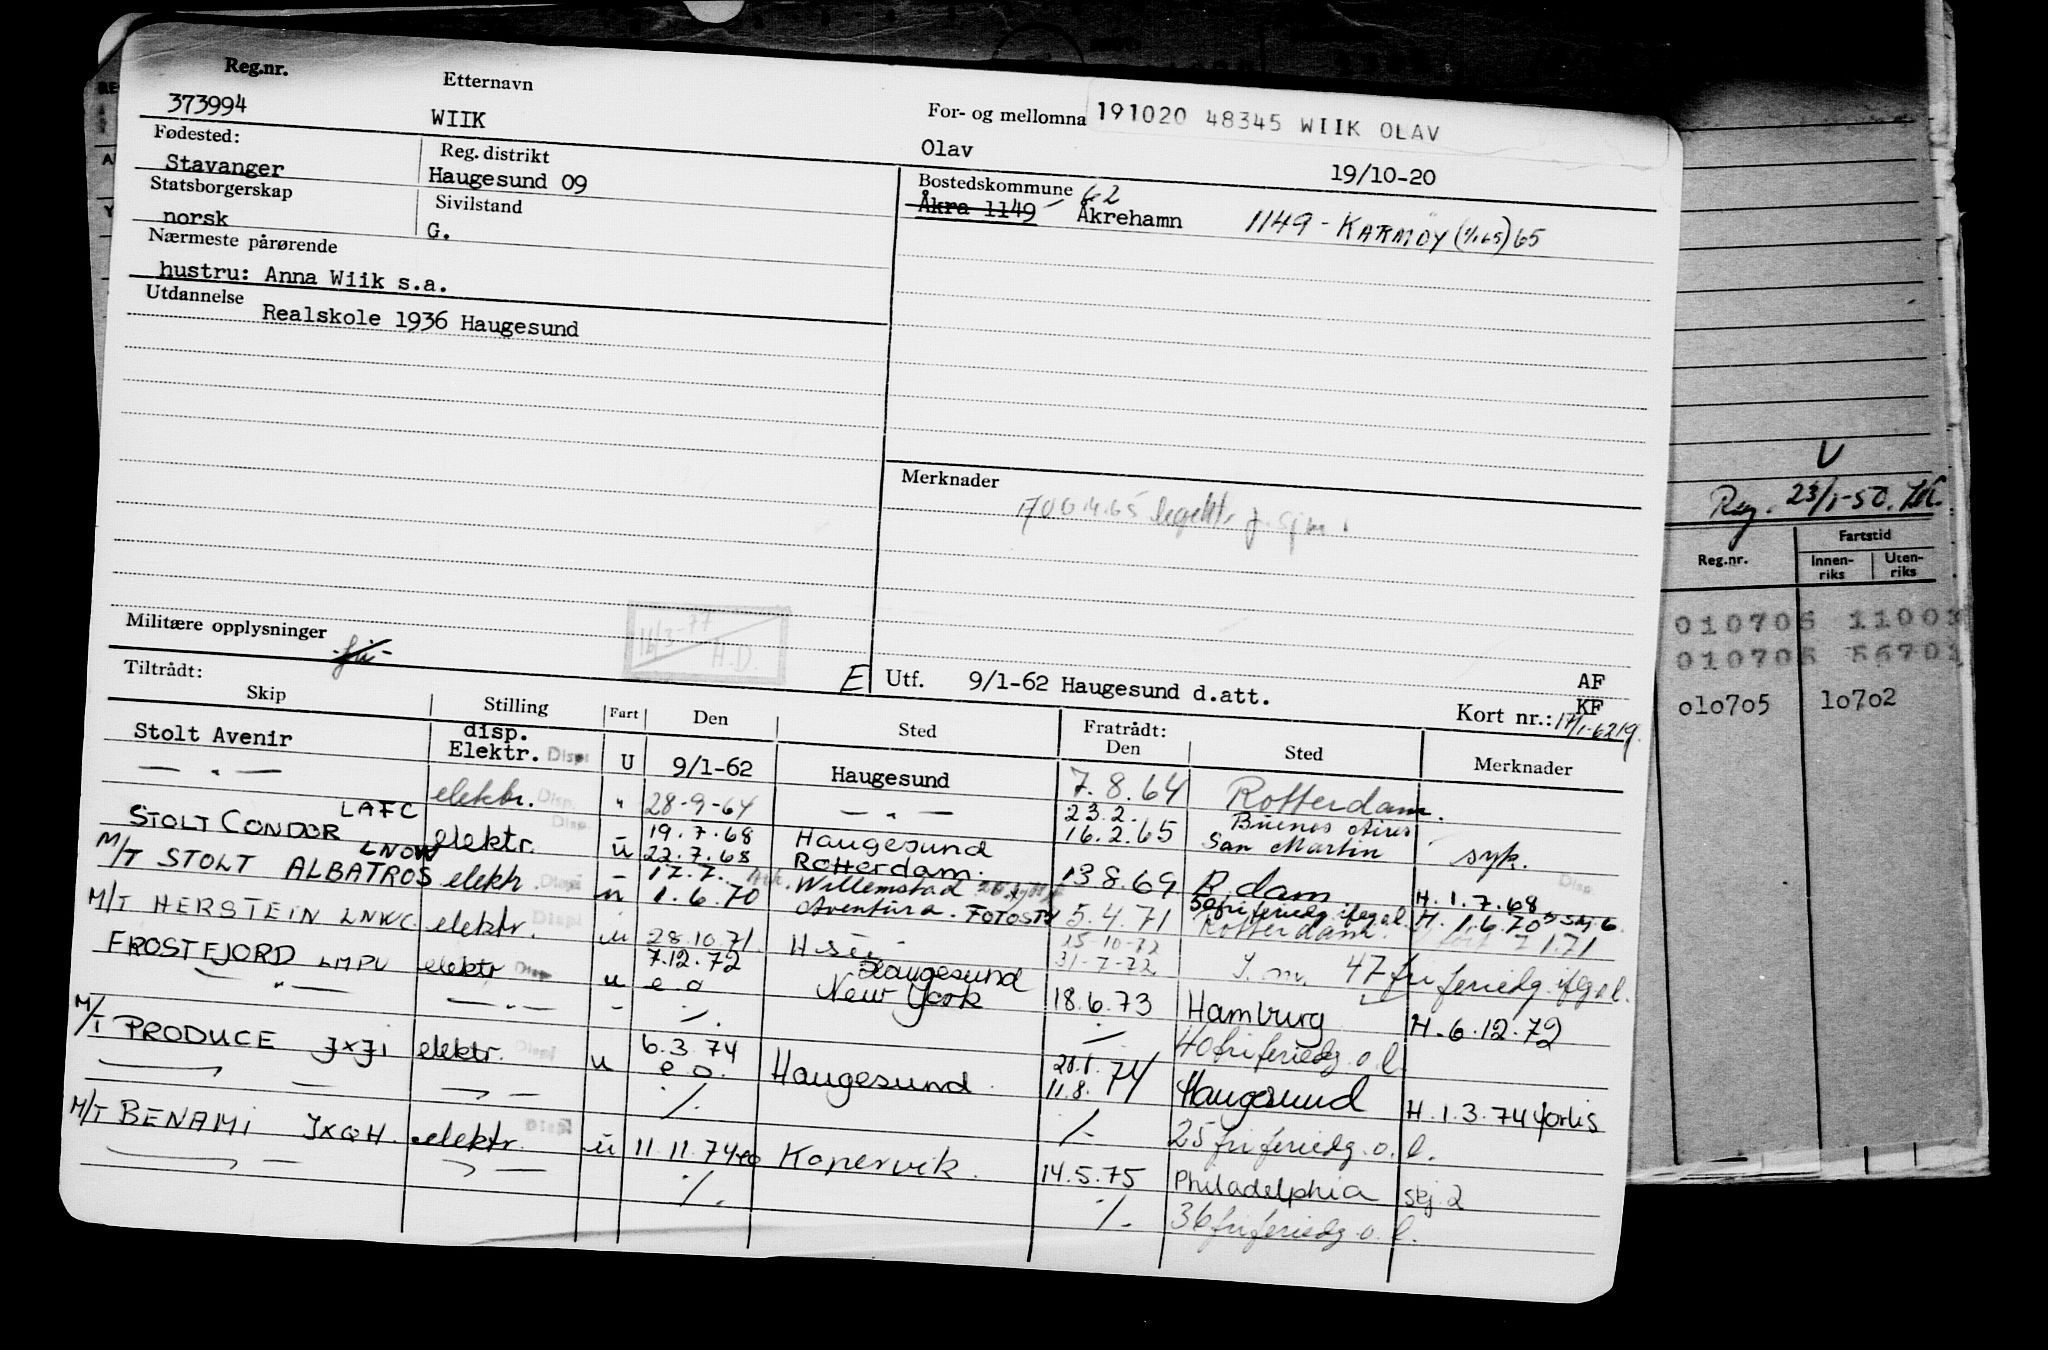 Reg.nr. Etternavn For- og mellomna 191020 48345 WIIK OLAV
373994 WIIK Olav 19/10-20
Fødested: Reg. distrikt Bostedskommune 62
Stavanger Haugesund 09 Åkra 1149 Åkrehamn 1149 - KARMØY (1/1 65) 65
Statsborgerskap Sivilstand
norsk G.
Nærmeste pårørende
hustru: Anna Wiik s.a.
Utdannelse
Realskole 1936 Haugesund
Merknader
Militære opplysninger
16/3-77 H.D.
E Utf. 9/1-62 Haugesund d.att. AF
KF
Tiltrådt: Kort nr.: 17/1-62
Skip Stilling Fart Den Sted Fratrådt: Den Sted Merknader
Stolt Avenir disp. Elektr. Disp. U 9/1-62 Haugesund 7.8.64 Rotterdam.
— " — elektr. Disp. " 28-9-64 — " — 23.2. Buenos Aires
16.2.65 San Martin syk.
STOLT CONDOR LAFC elektr. Disp. u 19.7.68 Haugesund
22.7.68 Rotterdam. 13.8.69 R.dam H.1.7.68 Disp
M/T STOLT ALBATROS LNOW elektr. Disp. u 17.7. Willemstad
1.6.70 Aventura. 5.4.71 Rotterdam H. 1.6.70
M/T HERSTEIN LNWC. elektr. Disp. u 28.10.71 H sú 15-10-72
31-7-72 47 fri feriedg. ifgol.
FROSTFJORD LMPV elektr Disp u 7.12.72 Haugesund
e o New York 18.6.73 Hamburg H.6.12.72
— " — — " — - ./. ./. 40 fri feriedg. o.l.
M/T PRODUCE JXJI elektr. Disp. u 6.3.74
e.o. Haugesund. 11.8.74 Haugesund H.1.3.74
./. ./. 25 fri feriedg. o.l.
M/T BENAMI JXQH. elektr. Disp. u 11.11.74 eo Kopervik. 14.5.75 Philadelphia skj. 2
./. ./. 36 fri feriedg. o.l.
U
Reg. 23/1-50.
Reg.nr. Fartstid
Innen-riks Uten-riks
010705
010705
010705 10702